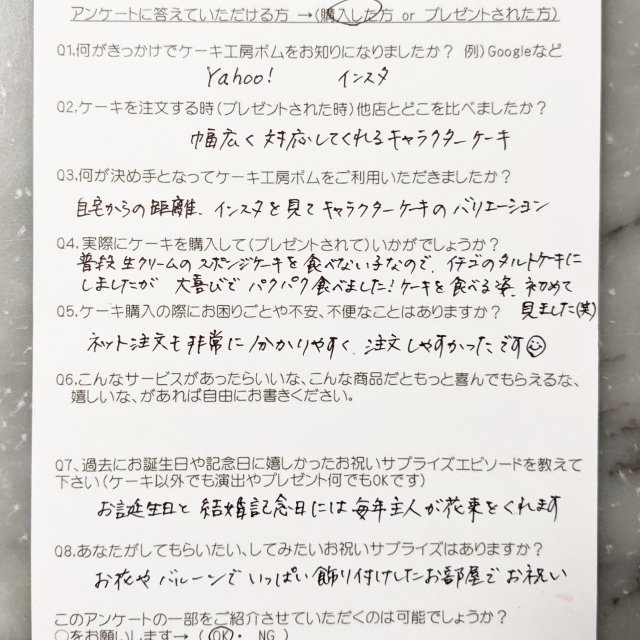 アンケートに答えていただける方 →(購入した方 or プレゼントされた方)
Q1,何がきっかけでケーキ工房ボムをお知りになりましたか? 例)Googleなど
Yahoo! インスタ
Q2,ケーキを注文する時(プレゼントされた時)他店とどこを比べましたか?
幅広く対応してくれるキャラクターケーキ
Q3,何が決め手となってケーキ工房ボムをご利用いただきましたか?
自宅からの距離、インスタを見てキャラクターケーキのバリエーション
Q4,実際にケーキを購入して(プレゼントされて)いかがでしょうか?
普段生クリームのスポンジケーキを食べない子なので、イチゴのタルトケーキに
しましたが大喜びでパクパク食べました!ケーキを食べる姿、初めて
見ました(笑)
Q5,ケーキ購入の際にお困りごとや不安、不便なことはありますか?
ネット注文も非常に分かりやすく、注文しやすかったです☺
Q6,こんなサービスがあったらいいな、こんな商品だともっと喜んでもらえるな、
嬉しいな、があれば自由にお書きください。
Q7、過去にお誕生日や記念日に嬉しかったお祝いサプライズエピソードを教えて
下さい(ケーキ以外でも演出やプレゼント何でもOKです)
お誕生日と結婚記念日には毎年主人が花束をくれます
Q8,あなたがしてもらいたい、してみたいお祝いサプライズはありますか?
お花やバルーンでいっぱい飾り付けしたお部屋でお祝い
このアンケートの一部をご紹介させていただくのは可能でしょうか?
○をお願いします→ ( OK ・ NG )